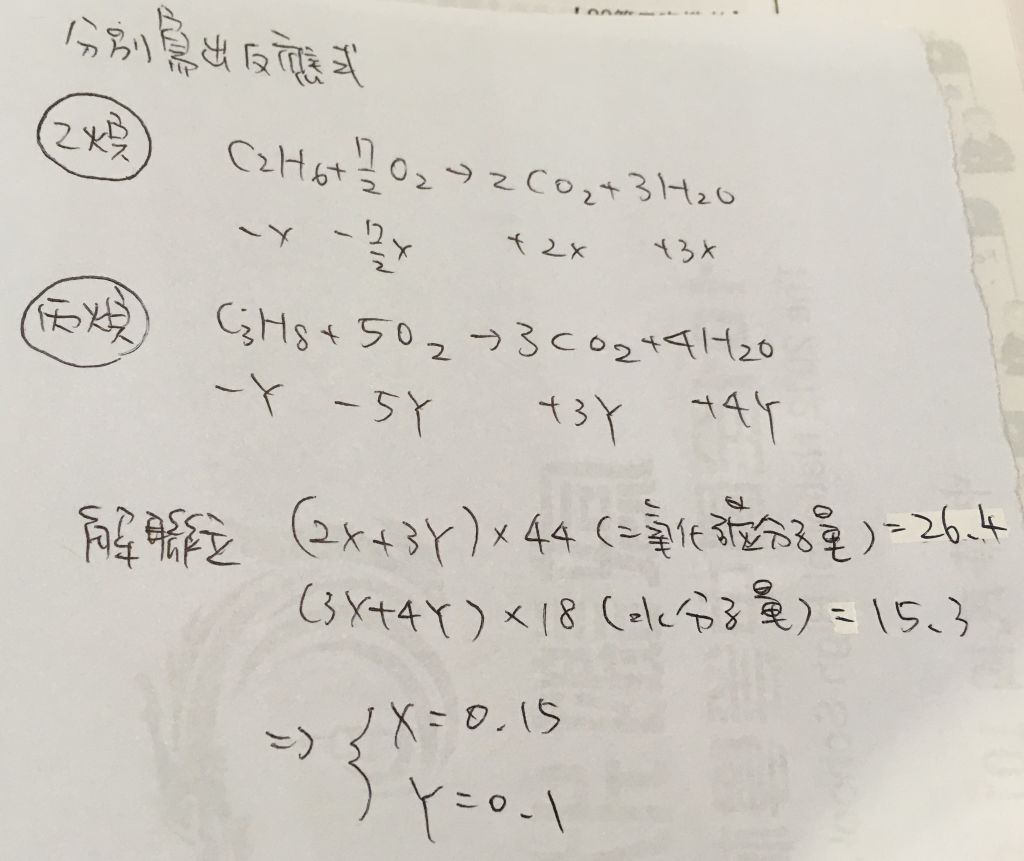 分別寫出反應式
乙烷 C2H6+17/2O2→2CO2+3H2O
-x -17/2x +2x +3x
丙烷 C3H8+5O2→3CO2+4H2O
-Y -5Y +3Y +4Y
解聯立 (2x+3Y)×44(二氧化碳分子量)=26.4
(3X+4Y)×18(水分子量)=15.3
=>{X=0.15
Y=0.1